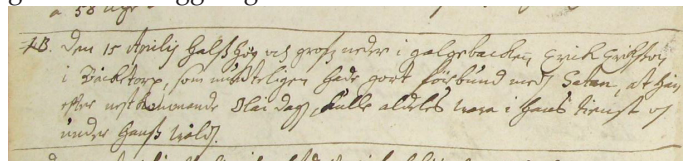 a 58 åhr
NB. Den 15 Aprilis halshög och grofz neder i galgebacken Erick Erikßon
i Bäcketorp, som wißerligen hade giort förbund med Satan, at han
efter nestkommande Olai dag, skulle aldeles wara i hans tienst och
under hanß wåld.